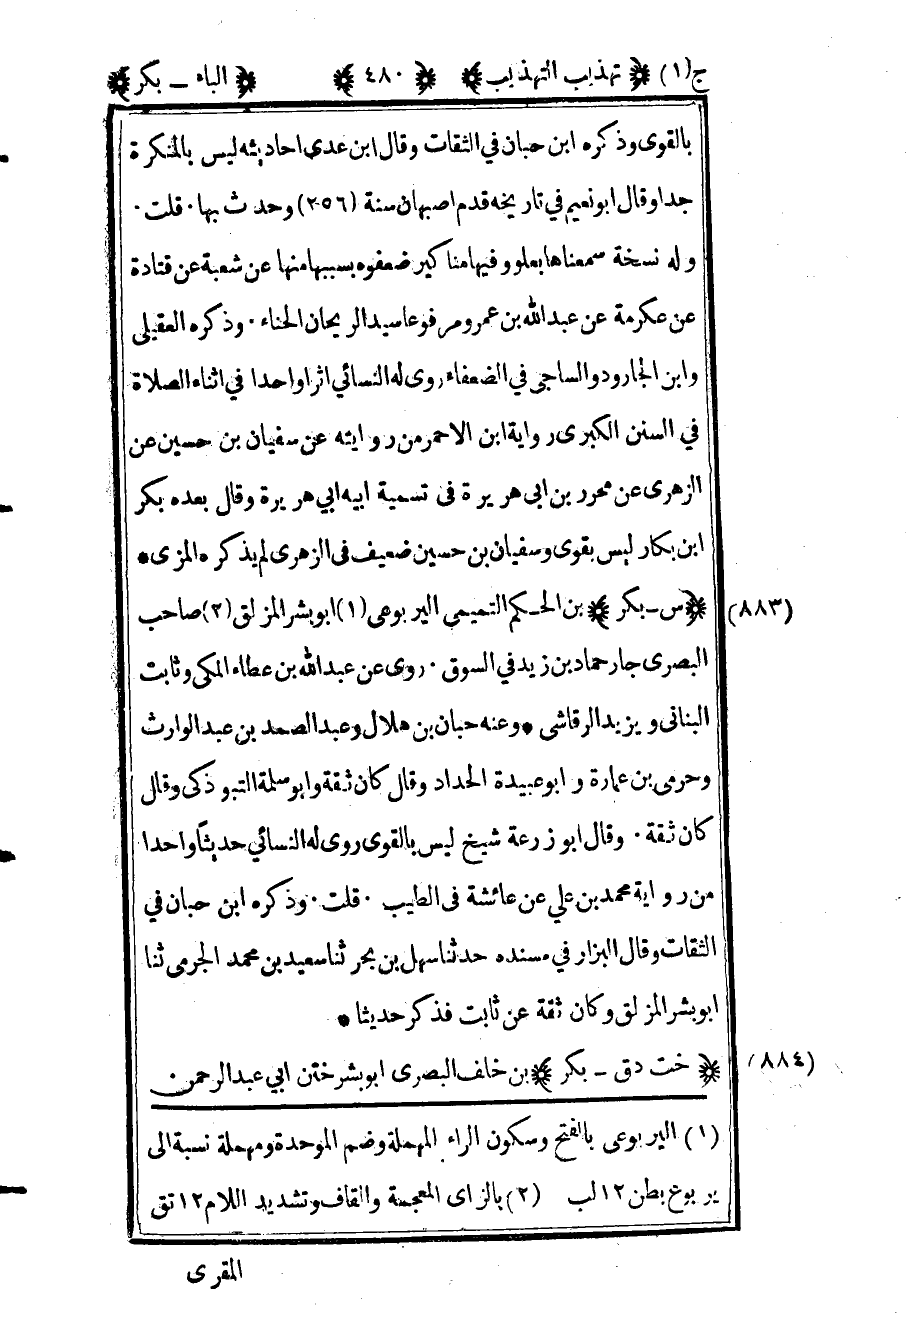 ج(١) ﴿ تهذيب التهذيب ﴾ ﴿ ٤٨٠ ﴾ ﴿ الباء ــ بكر ﴾
بالقوى وذكره ابن حبان في الثقات وقال ابن عدى احاديثه ليس بالمنكرة
جدا وقال ابو نعيم في تاريخه قدم اصبهان سنة (٢٠٥٦) وحدث بها ٠ قلت ٠
وله نسخة سمعناها بعلو وفيها مناكير ضعفوه بسببها منها عن شعبة عن قتادة
عن عكرمة عن عبدالله بن عمرو مرفوعا سيد الريحان الحناء ٠ وذكره العقيلى
وابن الجارود والساجى في الضعفاء روى له النسائي اثرا واحدا في اثناء الصلاة
في السنن الكبرى رواية ابن الاحمر من روايته عن سفيان بن حسين عن
الزهرى عن محرر بن ابى هريرة فى تسمية ابيه ابي هريرة وقال بعده بكر
ابن بكار ليس بقوى وسفيان بن حسين ضعيف فى الزهرى لم يذكره المزى *
﴿ س ــ بكر ﴾ بن الحكم التميمي اليربوعى (١) ابو بشر المزلق (٢) صاحب (٨٨٣)
البصرى جار حماد بن زيد في السوق ٠ روى عن عبدالله بن عطاء المكى وثابت
البنانى ويزيد الرقاشى * وعنه حبان بن هلال وعبد الصمد بن عبد الوارث
وحرمى بن عمارة وابو عبيدة الحداد وقال كان ثقة وابو سلمة التبوذكى وقال
كان ثقة ٠ وقال ابو زرعة شيخ ليس بالقوى روى له النسائي حديثاً واحدا
من رواية محمد بن علي عن عائشة فى الطيب ٠ قلت ٠ وذكره ابن حبان في
الثقات وقال البزار في مسنده حدثنا سهل بن بحر ثنا سعيد بن محمد الجرمى ثنا
ابو بشر المزلق وكان ثقة عن ثابت فذكر حديثا *
﴿ خت دق ــ بكر ﴾ بن خلف البصرى ابو بشر ختن ابي عبدالرحمن ٠ (٨٨٤)
(١) اليربوعى بالفتح وسكون الراء المهملة وضم الموحدة ومهملة نسبة الى
يربوع بطن ١٢ لب (٢) بالزاى المعجمة والقاف وتشديد اللام ١٢ تق
المقرى